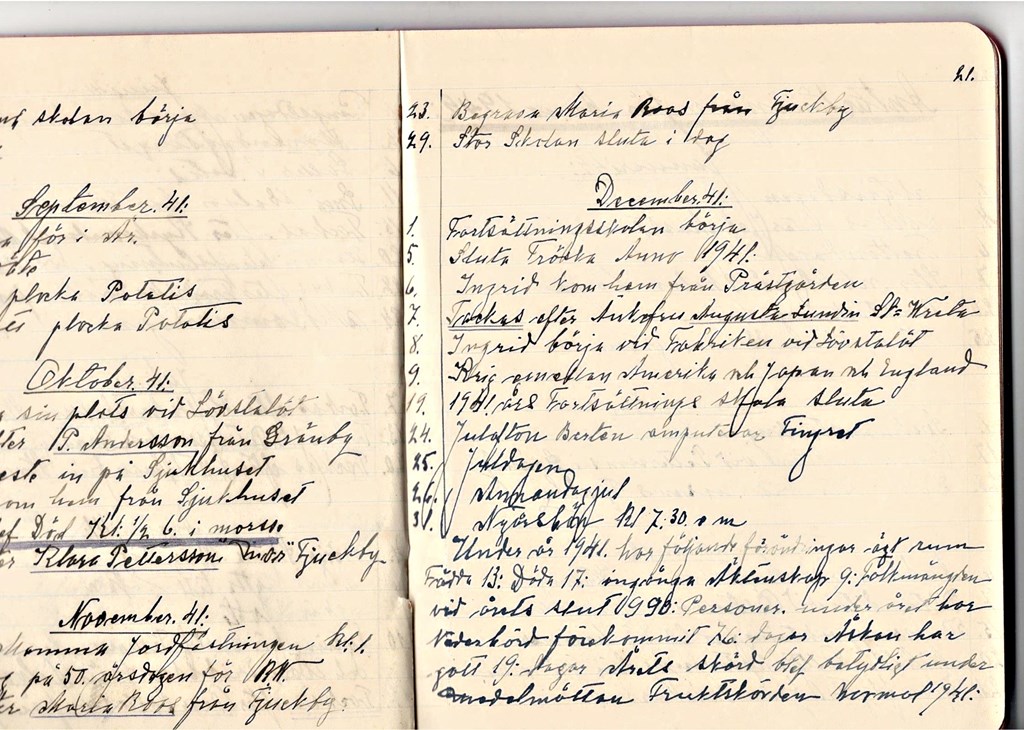 skolan börja
September. 41.
för i År.
plocka Potatis
plocka Potatis
Oktober. 41:
sin plats vid Lövstalöt
P. Andersson från Gränby
in på Sjukhuset
hem från Sjukhuset
Död Kl: 1/2 6. i morse.
Klara Pettersson Fjuckby
November. 41:
Jordfästningen Kl. 1.
på 50. årsdagen för
Maria Roos från Fjuckby.
21.
23. Begravn Maria Roos från Fjuckby
29. Stor Skolan sluta i dag
December. 41:
1. Fortsättningsskolan börja
5. Sluta Tröska Anno 1941:
6. Ingrid kom hem från Prästgården
7. Tackas efter Änkefru Augusta Lundin St= Wreta
8. Ingrid börja vid Fabriken vid Lövstalöt
9. Krig emellan Amerika och Japan och England
19. 1941 års Fortsättnings skola sluta
24. Julafton Berten amputerar Fingret
25. Juldagen
26. Annandagjul
31. Nyårsbön Kl 7:30 e m
Under år 1941. har följande förändringar ägt rum
Födda 13: Döda 17: ingångna Äktenskap 9: Folkmängden
vid årets slut 1990: Personer. under året har
Nederbörd förekommit 76: dagar Åskan har
gått 19: dagar Årets skörd blef betydligt under
medelmåttan Fruktskörden Normal 1941: